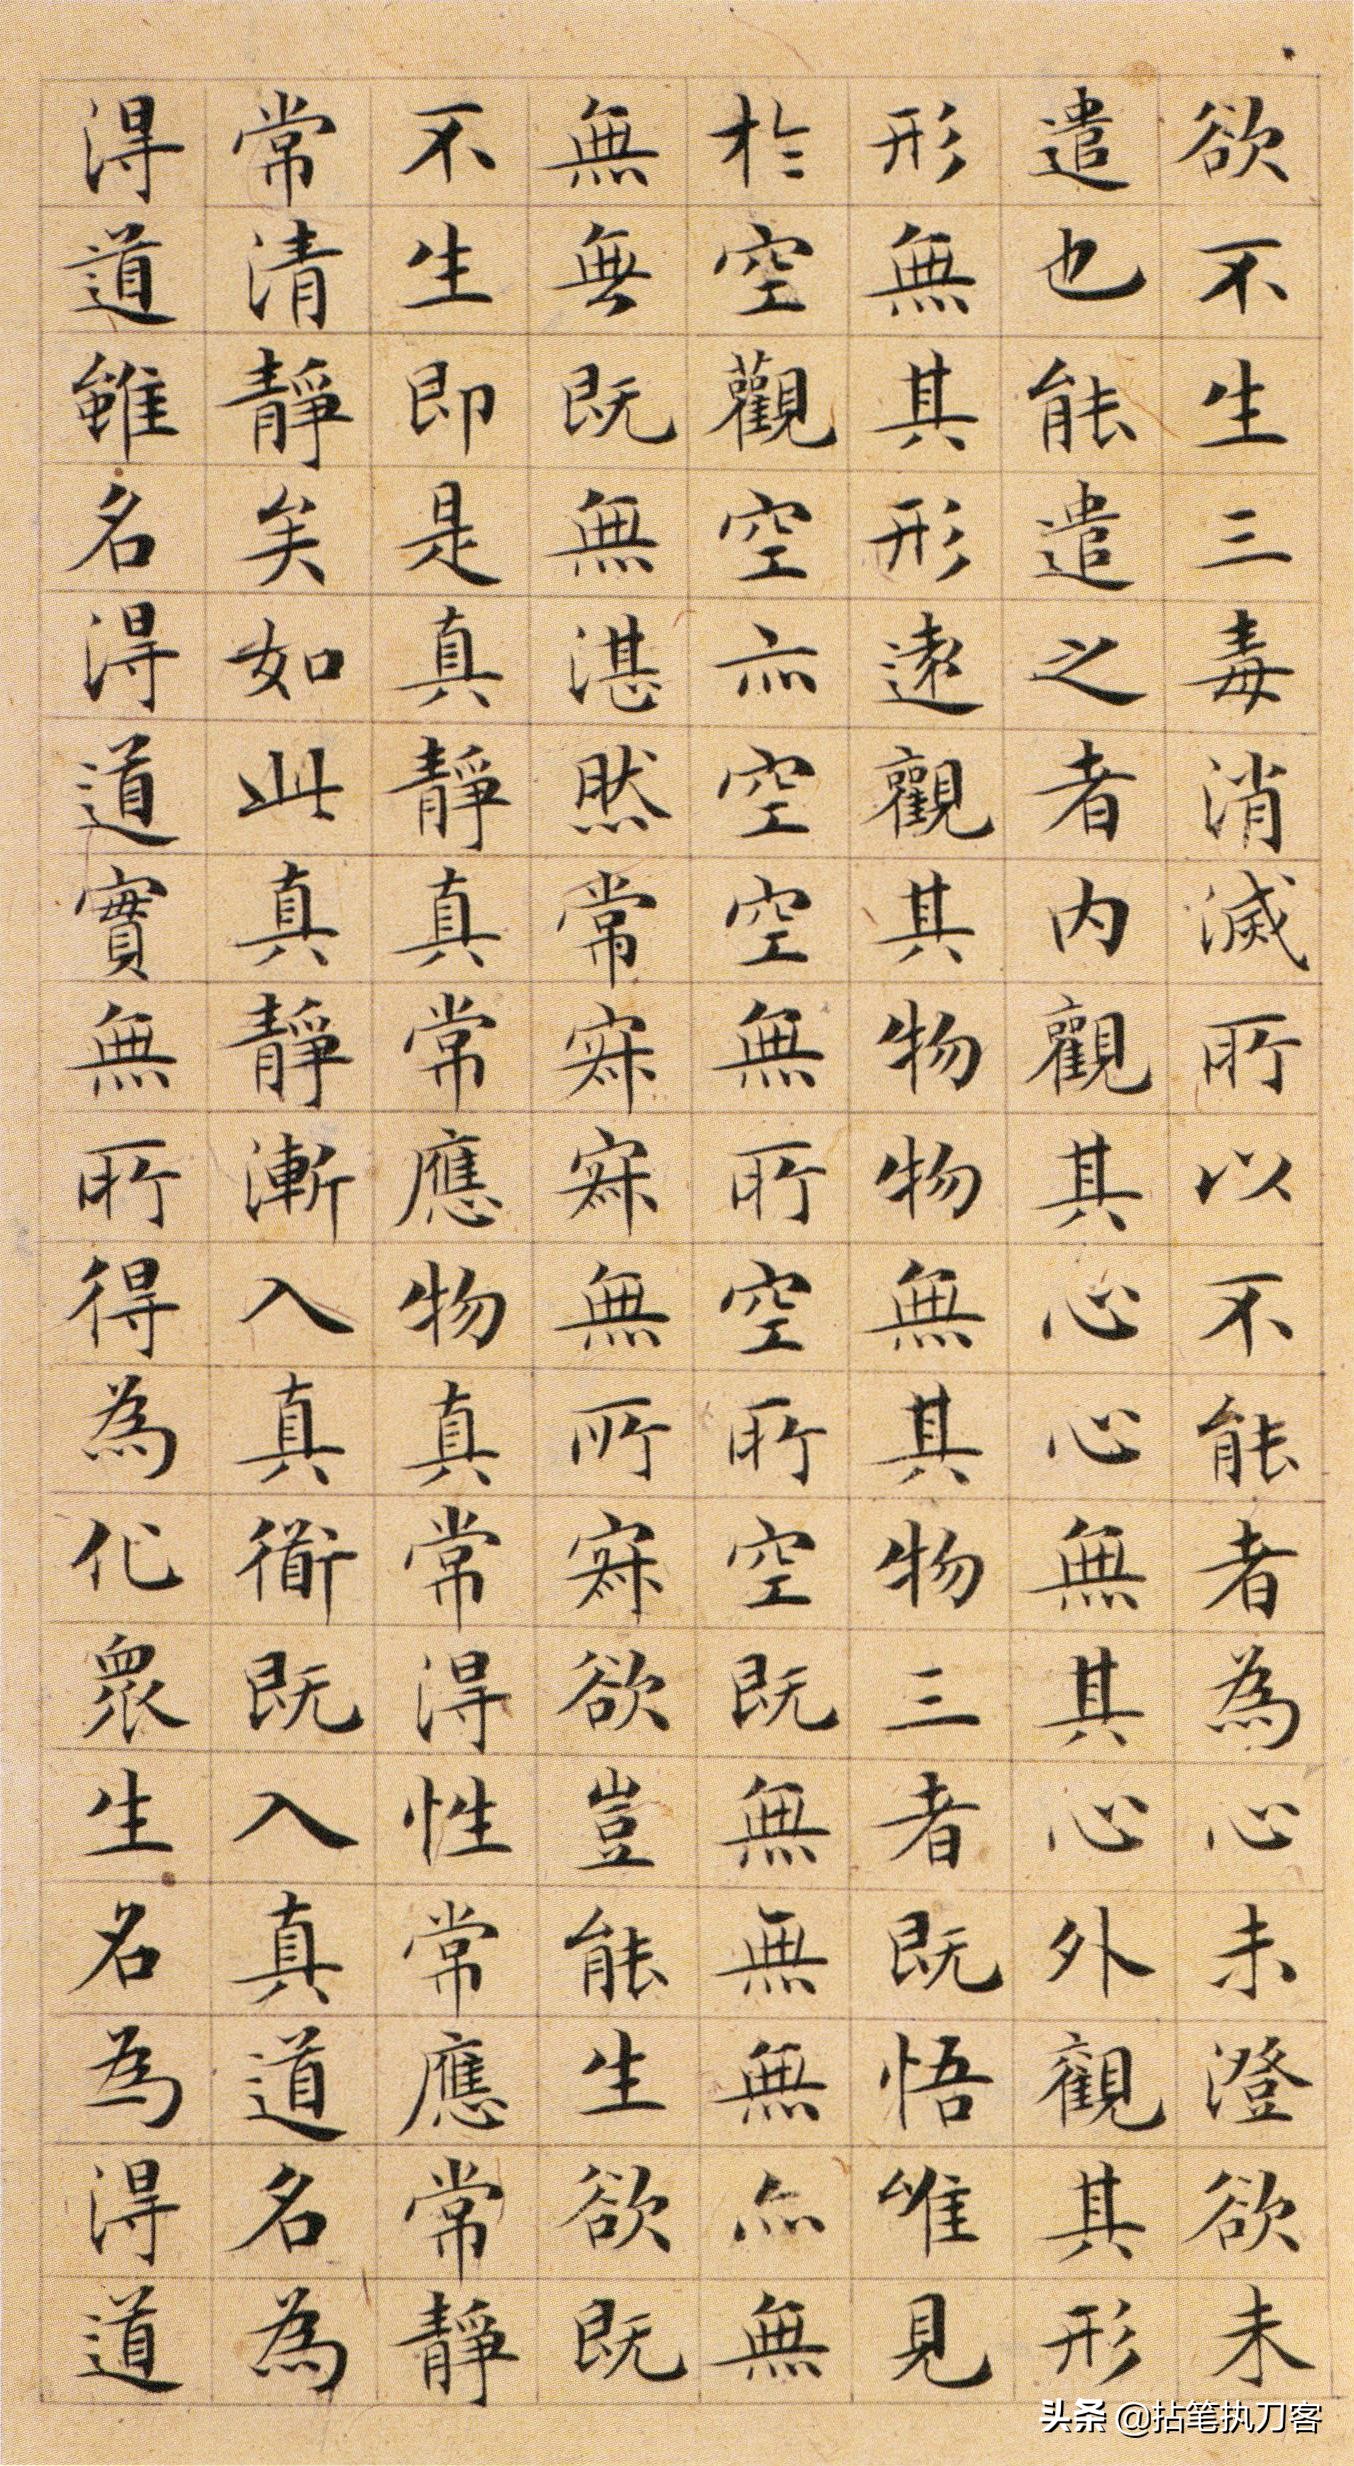 欲不生三毒消滅所以不能者為心未澄欲未
遣也能遣之者內觀其心心無其心外觀其形
形無其形遠觀其物物無其物三者既悟唯見
於空觀空亦空空無所空所空既無無無亦無
無無既無湛然常寂寂無所寂欲豈能生欲既
不生即是真靜真常應物真常得性常應常靜
常清靜矣如此真靜漸入真衜既入真道名為
得道雖名得道實無所得為化眾生名為得道
头条 @拈笔执刀客